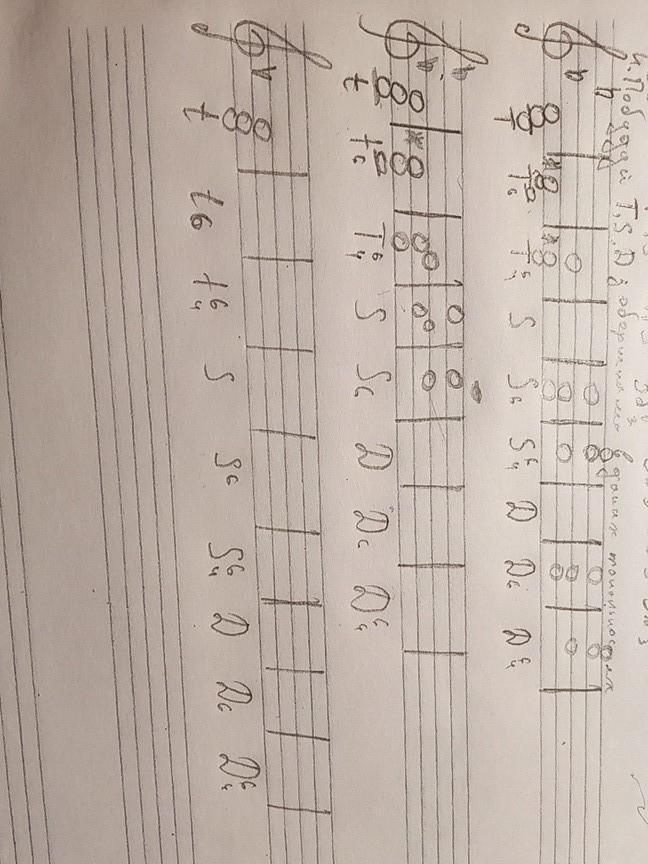 4. Побудуй T, S, D з оберненнями в даних тональностях
T T6 T6/4 S S6 S6/4 D D6 D6/4
t t6 T6/4 S S6 D D6 D6/4
t t6 t6/4 S S6 S6/4 D D6 D6/4